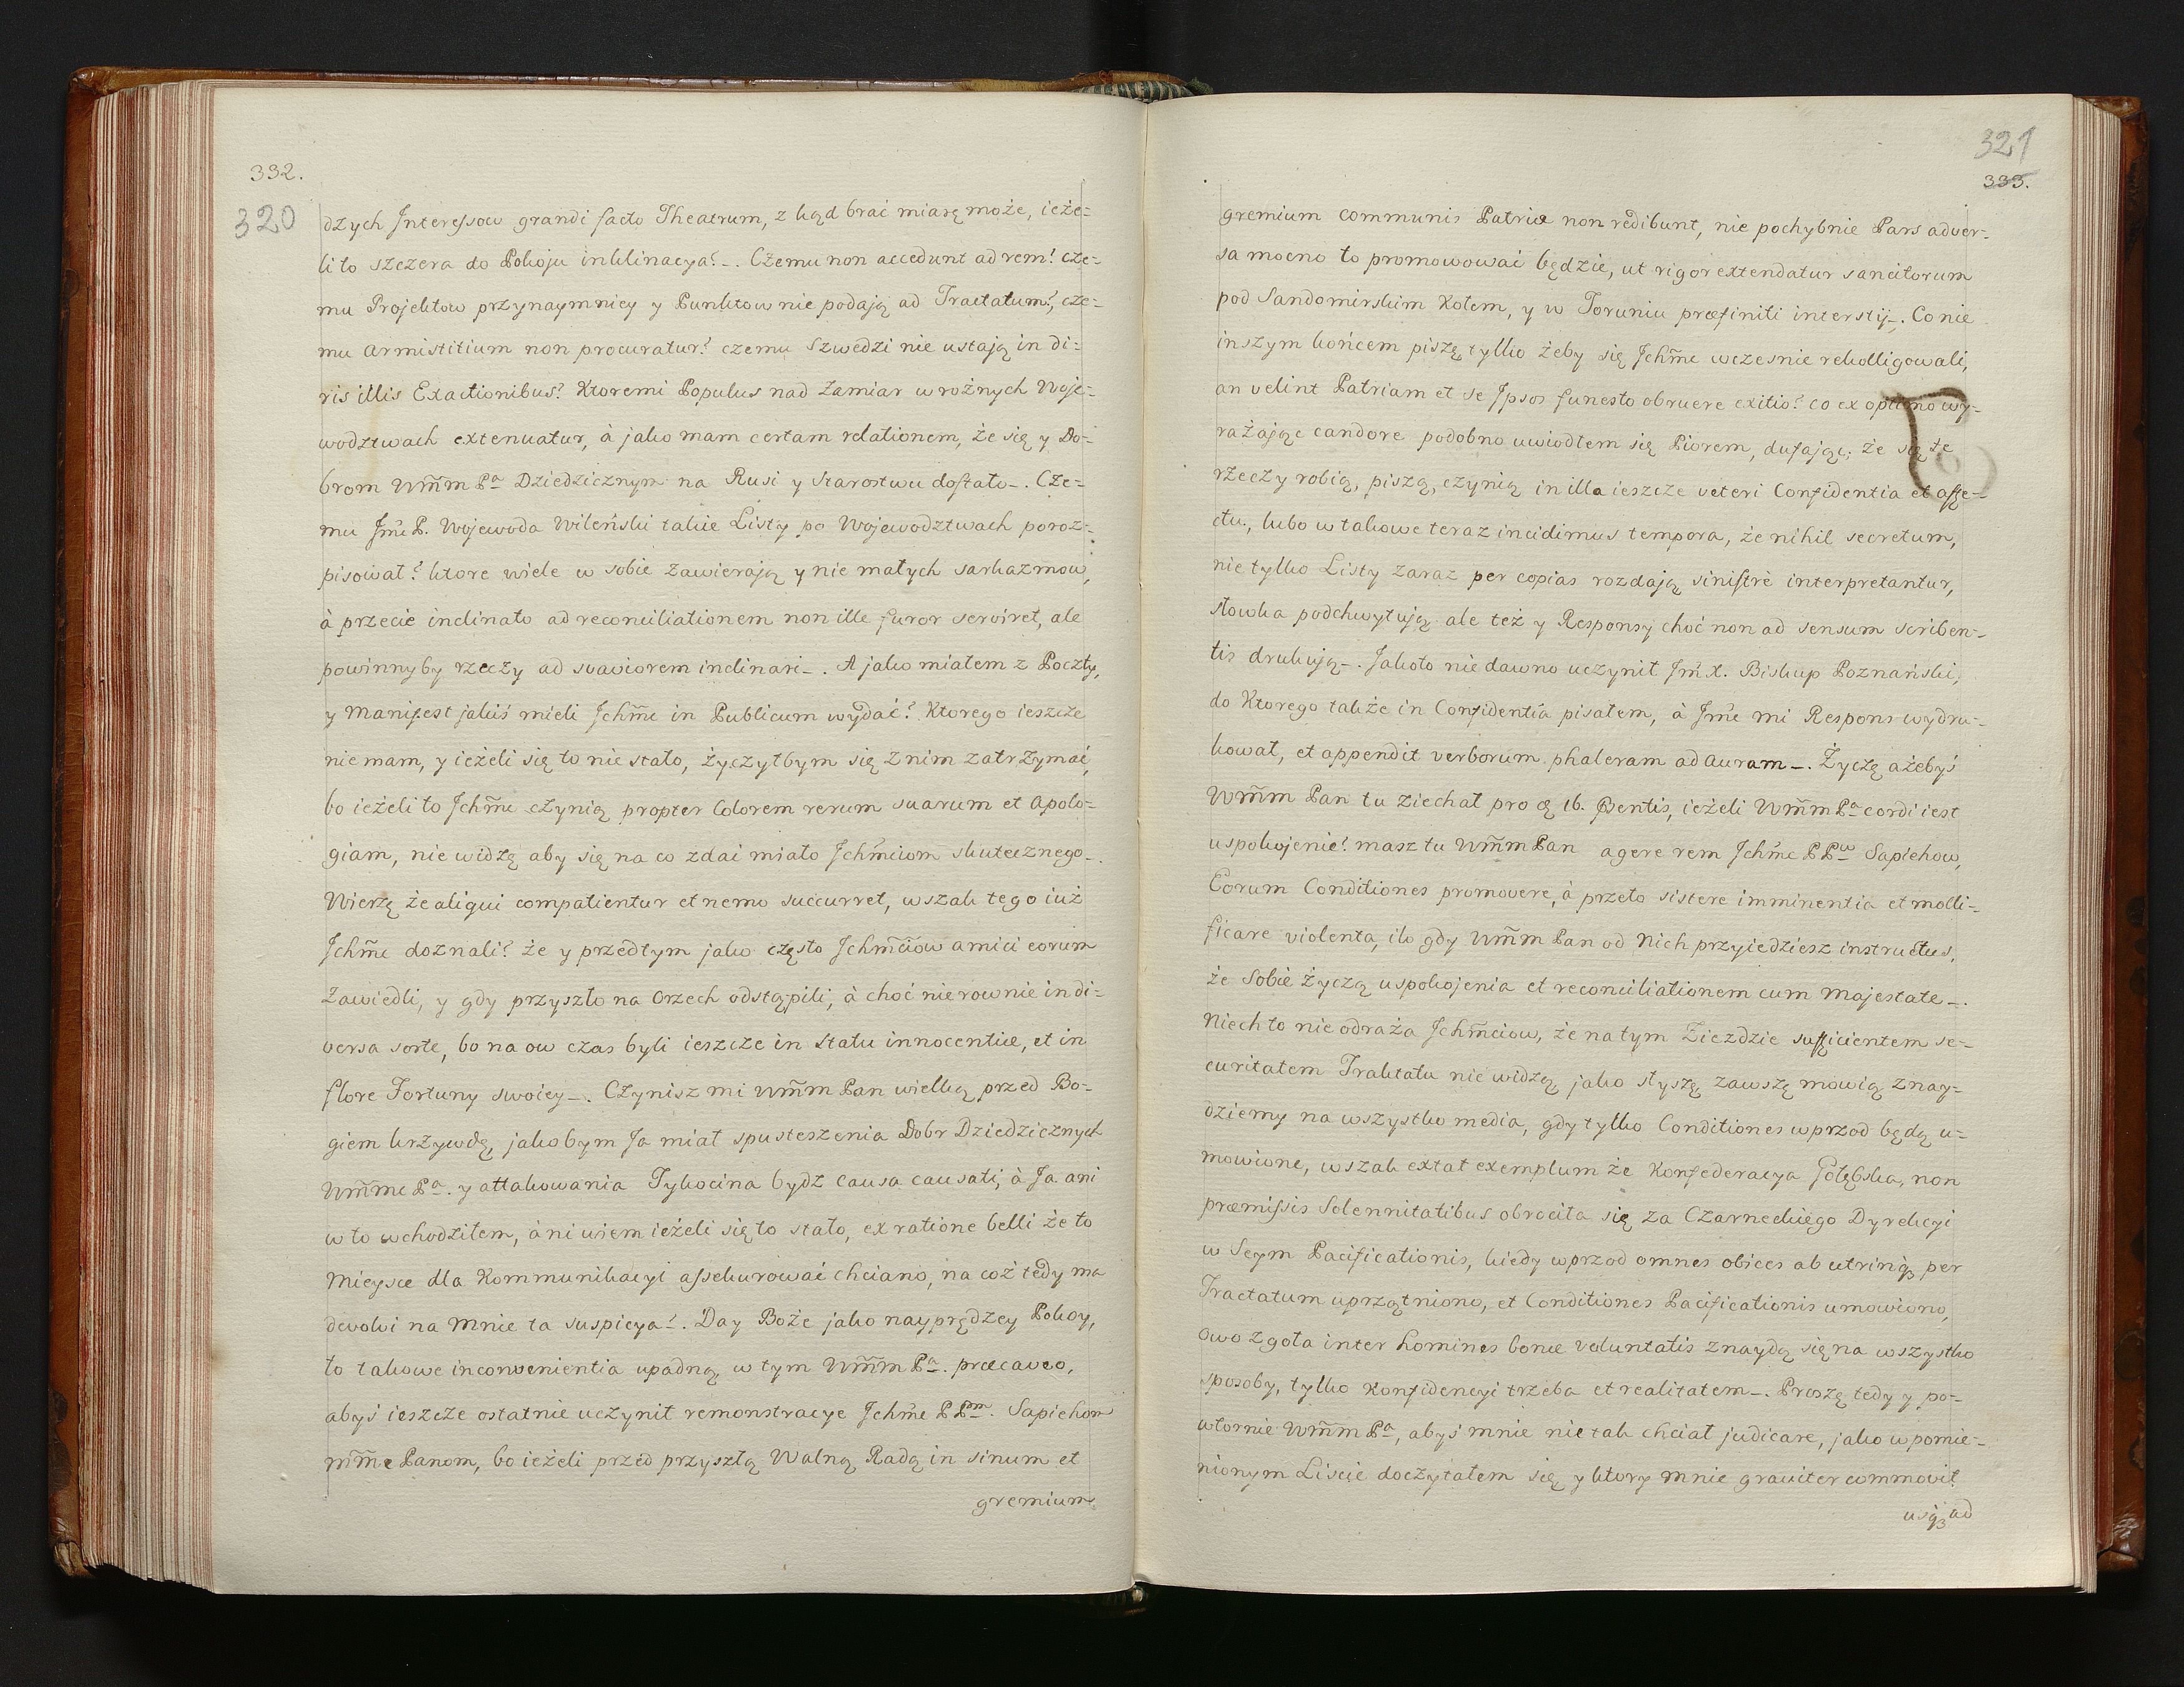 332.
320
dzych Interessow grandi facto Theatrum, z kąd brai miarę może, ieże=
li to szczera do Pokoju inklinacya? _. Czemu non accedunt ad rem! cze=
mu Projektow przynaymniey y Punktow nie podają ad Tractatum?, cze=
mu armistitium non procuratur? czemu Szwedzi nie ustają in di=
ris illis Exactionibus? Ktoremi Populus nad zamiar w rożnych Woje=
wodztwach extenuatur, à jako mam certam relationem, że się y Do=
brom Wm̃m Pa Dziedzicznym na Rusi y Starostwu dostało _. Cze=
mu Jm̃ P. Wojewoda Wileński takie Listy po Wojewodztwach poroz=
pisował? ktore wiele w sobie zawierają y nie małych sarkazmow,
à przecie inclinato ad reconciliationem non ille furor serviret, ale
powinnyby rzeczy ad suaviorem inclinari _. A jako miałem z Poczty,
y manifest jakiś mieli Jchm̃e in Publicum wydać? Ktorego ieszcze
nie mam, y ieżeli się to nie stało, życzyłbym się z nim zatrzymać,
bo ieżeli to Jchm̃e czynią propter Colorem rerum suarum et apolo=
giam, nie widzę aby się na co zdai miało Jchm̃ciom skutecznego _.
Wierzę że aliqui compatientur et nemo succurret, wszak tego iuż
Jchm̃e doznali? że y przedtym jako często Jchm̃ciow amici eorum
zawiedli, y gdy przyszło na Orzech odstąpili, à choć nie rownie in di=
versa sorte, bo na ow czas byli ieszcze in statu innocentiæ, et in
flore Fortuny swoiey _. Czynisz mi Wm̃m Pan wielką przed Bo=
giem krzywdę, jakobym Ja miał spusteszenia Dobr Dziedzicznych
Wm̃mc Pa. y attakowania Tykocina bydz causa causati, à Ja ani
w to wchodziłem, à ni wiem ieżeli się to stało, ex ratione belli że to
Mieysce dla Kommunikacyi assekurować chciano, na coż tedy ma
devolvi na mnie ta suspicya!. Day Boże jako nayprędzey Pokoy,
to takowe inconvenientia upadną, w tym Wm̃m Pa. præcaveo,
abyś ieszcze ostatnie uczynił remonstracye Jchm̃c PPm. Sapiehom
mm̃c Panom, bo ieżeli przed przyszłą Walną Radą in sinum et
gremium
321
333.
gremium communis Patriæ non redibunt, nie pochybnie Pars adver=
sa mocno to promowowai będzie, ut rigor extendatur sancitorum
pod Sandomirskim Kołem, y w Toruniu præfiniti interstij _. Co nie
inszym końcem piszę, tylko żeby się Jchm̃e wczesnie rekolligowali,
an velint Patriam et se Jpsos funesto obruere exitio? co ex optimo wy=
rażając candore podobno uwiodłem się Piorem, dufając, że się te
rzeczy robią, piszą, czynią in illa ieszcze veteri Confidentia et affe=
ctu, lubo w takowe teraz incidimus tempora, że nihil secretum,
nie tylko Listy zaraz per copias rozdają sinistrè interpretantur,
słowka podchwytują ale też y Responsy choć non ad sensum scriben=
tis drukują _. Jakoto nie dawno uczynił Jm̃ X. Biskup Poznański,
do Ktorego także in Confidentia pisałem, à Jm̃c mi Respons wydru=
kował, et appendit verborum phaleram ad auram _. Życzę ażebyś
Wm̃m Pan tu ziechał pro 16. ꝑsentis, ieżeli Wm̃m Pa cordi iest
uspokojenie? masz tu Wm̃m Pan agere rem Jchm̃c PPw Sapiehow,
Eorum Conditiones promovere, à przeto sistere imminentia et molli=
ficare violenta, ilo gdy Wm̃m Pan od Nich przyiedziesz instructus,
że Sobie życzą uspokojenia et reconciliationem cum Majestate _.
Niech to nie odraża Jchm̃ciow, że na tym Ziezdzie sufficientem se=
curitatem Traktatu nie widzą, jako słyszę zawszę mowią znay=
dziemy na wszystko media, gdy tylko Conditiones wprzod będą u=
mowione, wszak extat exemplum że Konfederacya Gołębska, non
præmissis Solennitatibus obrocila się za Czarneckiego Dyrekcyi
w Seym Pacificationis, kiedy wprzod omnes obices ab utrinq3 per
Tractatum uprzątniono, et Conditiones Pacificationis umowiono,
owo zgoła inter homines bonæ voluntatis znaydą się na wszystko
sposoby, tylko Konfidencyi trzeba et realitatem _. Proszę tedy y po=
wtornie Wm̃m Pa, abyś mnie nie tak chciał judicare, jako wpomie=
nionym Liscie doczytałem się, y ktory mnie graviter commovit
usq3 ad